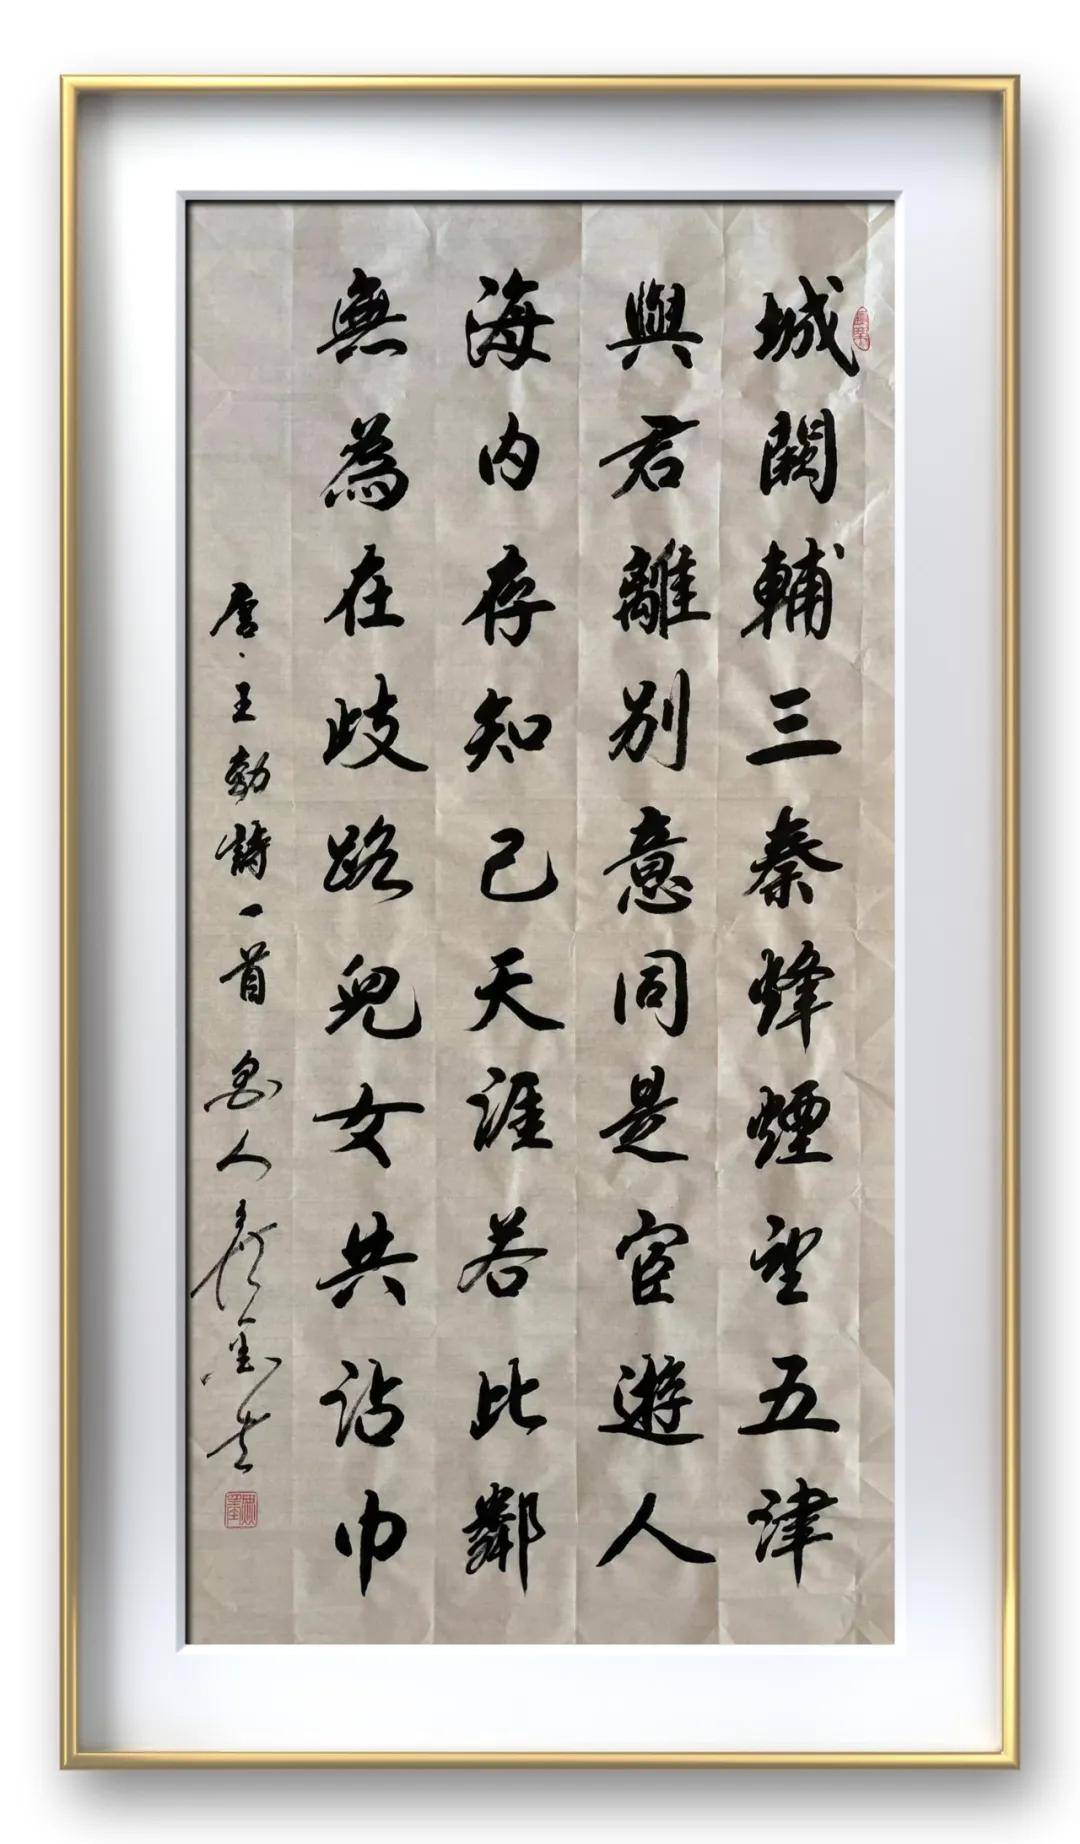 城闕輔三秦烽煙望五津
與君離別意同是宦遊人
海内存知己天涯若比鄰
無為在歧路兒女共沾巾
唐·王勃詩一首 魯人